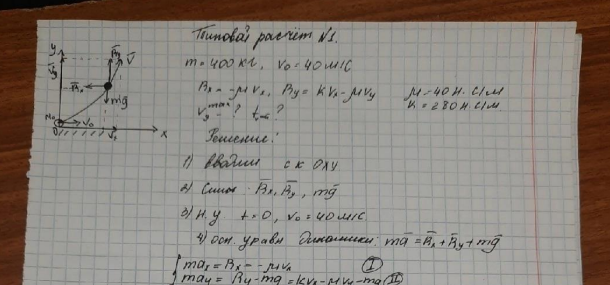 Типовой расчёт №1.
m = 400 кг, v₀ = 40 м/с
Rx = -μvx, Ry = kvx - μvy
μ = 40 Н·с/м
k = 280 Н·с/м
vy max - ? t - ?
Решение:
1) Вводим с к Oxy
2) Силы: R̄x, R̄y, mḡ
3) Н.У t = 0, v₀ = 40 м/с
4) осн. уравн динамики: mā = R̄x + R̄y + mḡ
max = Rx = -μvx (I)
may = Ry - mg = kvx - μvy - mg (II)
y
R̄y
v̄
R̄x
mḡ
M₀
v̄₀
O
x